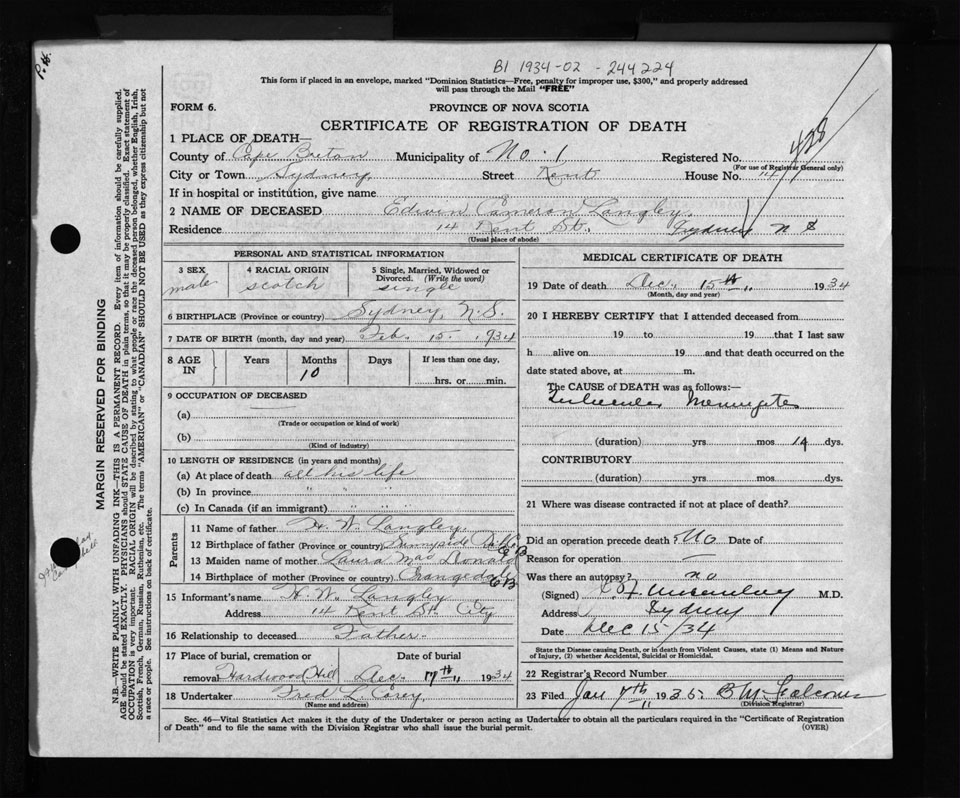 P.H.
B1 1934-02 - 244224
This form if placed in an envelope, marked "Dominion Statistics—Free, penalty for improper use, $300," and properly addressed
will pass through the Mail "FREE"
FORM 6.
PROVINCE OF NOVA SCOTIA
CERTIFICATE OF REGISTRATION OF DEATH
428
1 PLACE OF DEATH—
County of Cape Breton Municipality of No. 1 Registered No.
(For use of Registrar General only)
City or Town Sydney Street Kent House No. 14
If in hospital or institution, give name
2 NAME OF DECEASED Edwin Cameron Langley
Residence 14 Kent St. Sydney N S
(Usual place of abode)
PERSONAL AND STATISTICAL INFORMATION
3 SEX 4 RACIAL ORIGIN 5 Single, Married, Widowed or
Divorced. (Write the word)
male scotch single
6 BIRTHPLACE (Province or country) Sydney, N.S.
7 DATE OF BIRTH (month, day and year) Feb. 15. 1934
8 AGE IN Years Months Days If less than one day,
10 hrs. or min.
9 OCCUPATION OF DECEASED
(a)
(Trade or occupation or kind of work)
(b)
(Kind of industry)
10 LENGTH OF RESIDENCE (in years and months)
(a) At place of death all his life
(b) In province " " "
(c) In Canada (if an immigrant) " " "
Parents
11 Name of father H. W. Langley
12 Birthplace of father (Province or country) Sunnyside CB
13 Maiden name of mother Laura Mac Donald
14 Birthplace of mother (Province or country) Orangedale CB
15 Informant's name H. W. Langley
Address 14 Kent St. City
16 Relationship to deceased Father.
17 Place of burial, cremation or Date of burial
removal Hardwood Hill Dec. 17th 1934
18 Undertaker Fred L. Corey
(Name and address)
MEDICAL CERTIFICATE OF DEATH
19 Date of death Dec. 15th 1934
(Month, day and year)
20 I HEREBY CERTIFY that I attended deceased from
19 to 19 that I last saw
h alive on 19 and that death occurred on the
date stated above, at m.
The CAUSE OF DEATH was as follows:—
Tubercular Meningitis
(duration) yrs mos 14 dys.
CONTRIBUTORY
(duration) yrs mos dys.
21 Where was disease contracted if not at place of death?
Did an operation precede death No Date of
Reason for operation —
Was there an autopsy? no
(Signed) M.D.
Address Sydney
Date Dec 15/34
State the Disease causing Death, or in death from Violent Causes, state (1) Means and Nature
of Injury, (2) whether Accidental, Suicidal or Homicidal.
22 Registrar's Record Number
23 Filed Jan 7th 1935 B Mc Falconer
(Division Registrar)
Sec. 46—Vital Statistics Act makes it the duty of the Undertaker or person acting as Undertaker to obtain all the particulars required in the "Certificate of Registration
of Death" and to file the same with the Division Registrar who shall issue the burial permit.
(OVER)
MARGIN RESERVED FOR BINDING
N.B.—WRITE PLAINLY WITH UNFADING INK—THIS IS A PERMANENT RECORD. Every item of information should be carefully supplied.
AGE should be stated EXACTLY. PHYSICIANS should STATE CAUSE OF DEATH in plain terms, so that it may be properly classified. Exact statement of
OCCUPATION is very important. RACIAL ORIGIN will be described by stating to what people or race the deceased person belonged, whether English, Irish,
Scottish, French, German, Russian, Ruthenian, etc. The terms "AMERICAN" or "CANADIAN" SHOULD NOT BE USED as they express citizenship but not
a race or people. See instructions on back of certificate.